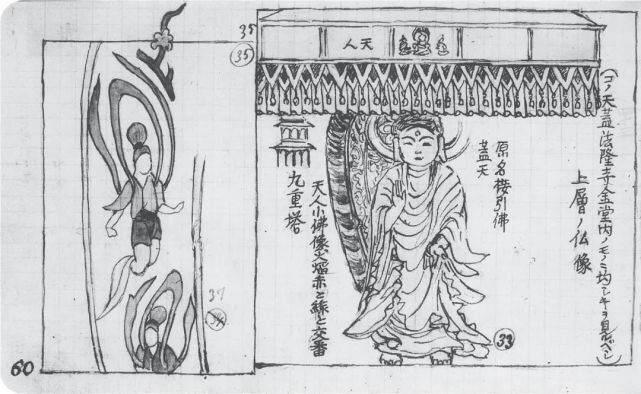 35
㉟
人天
（コノ天蓋法隆寺金堂内ノモノミ均シキヲ見ルベシ）
上層ノ仏像
原名接引佛
蓋天
天人小佛像火焔赤と緑と交番
九重塔
33
37
60